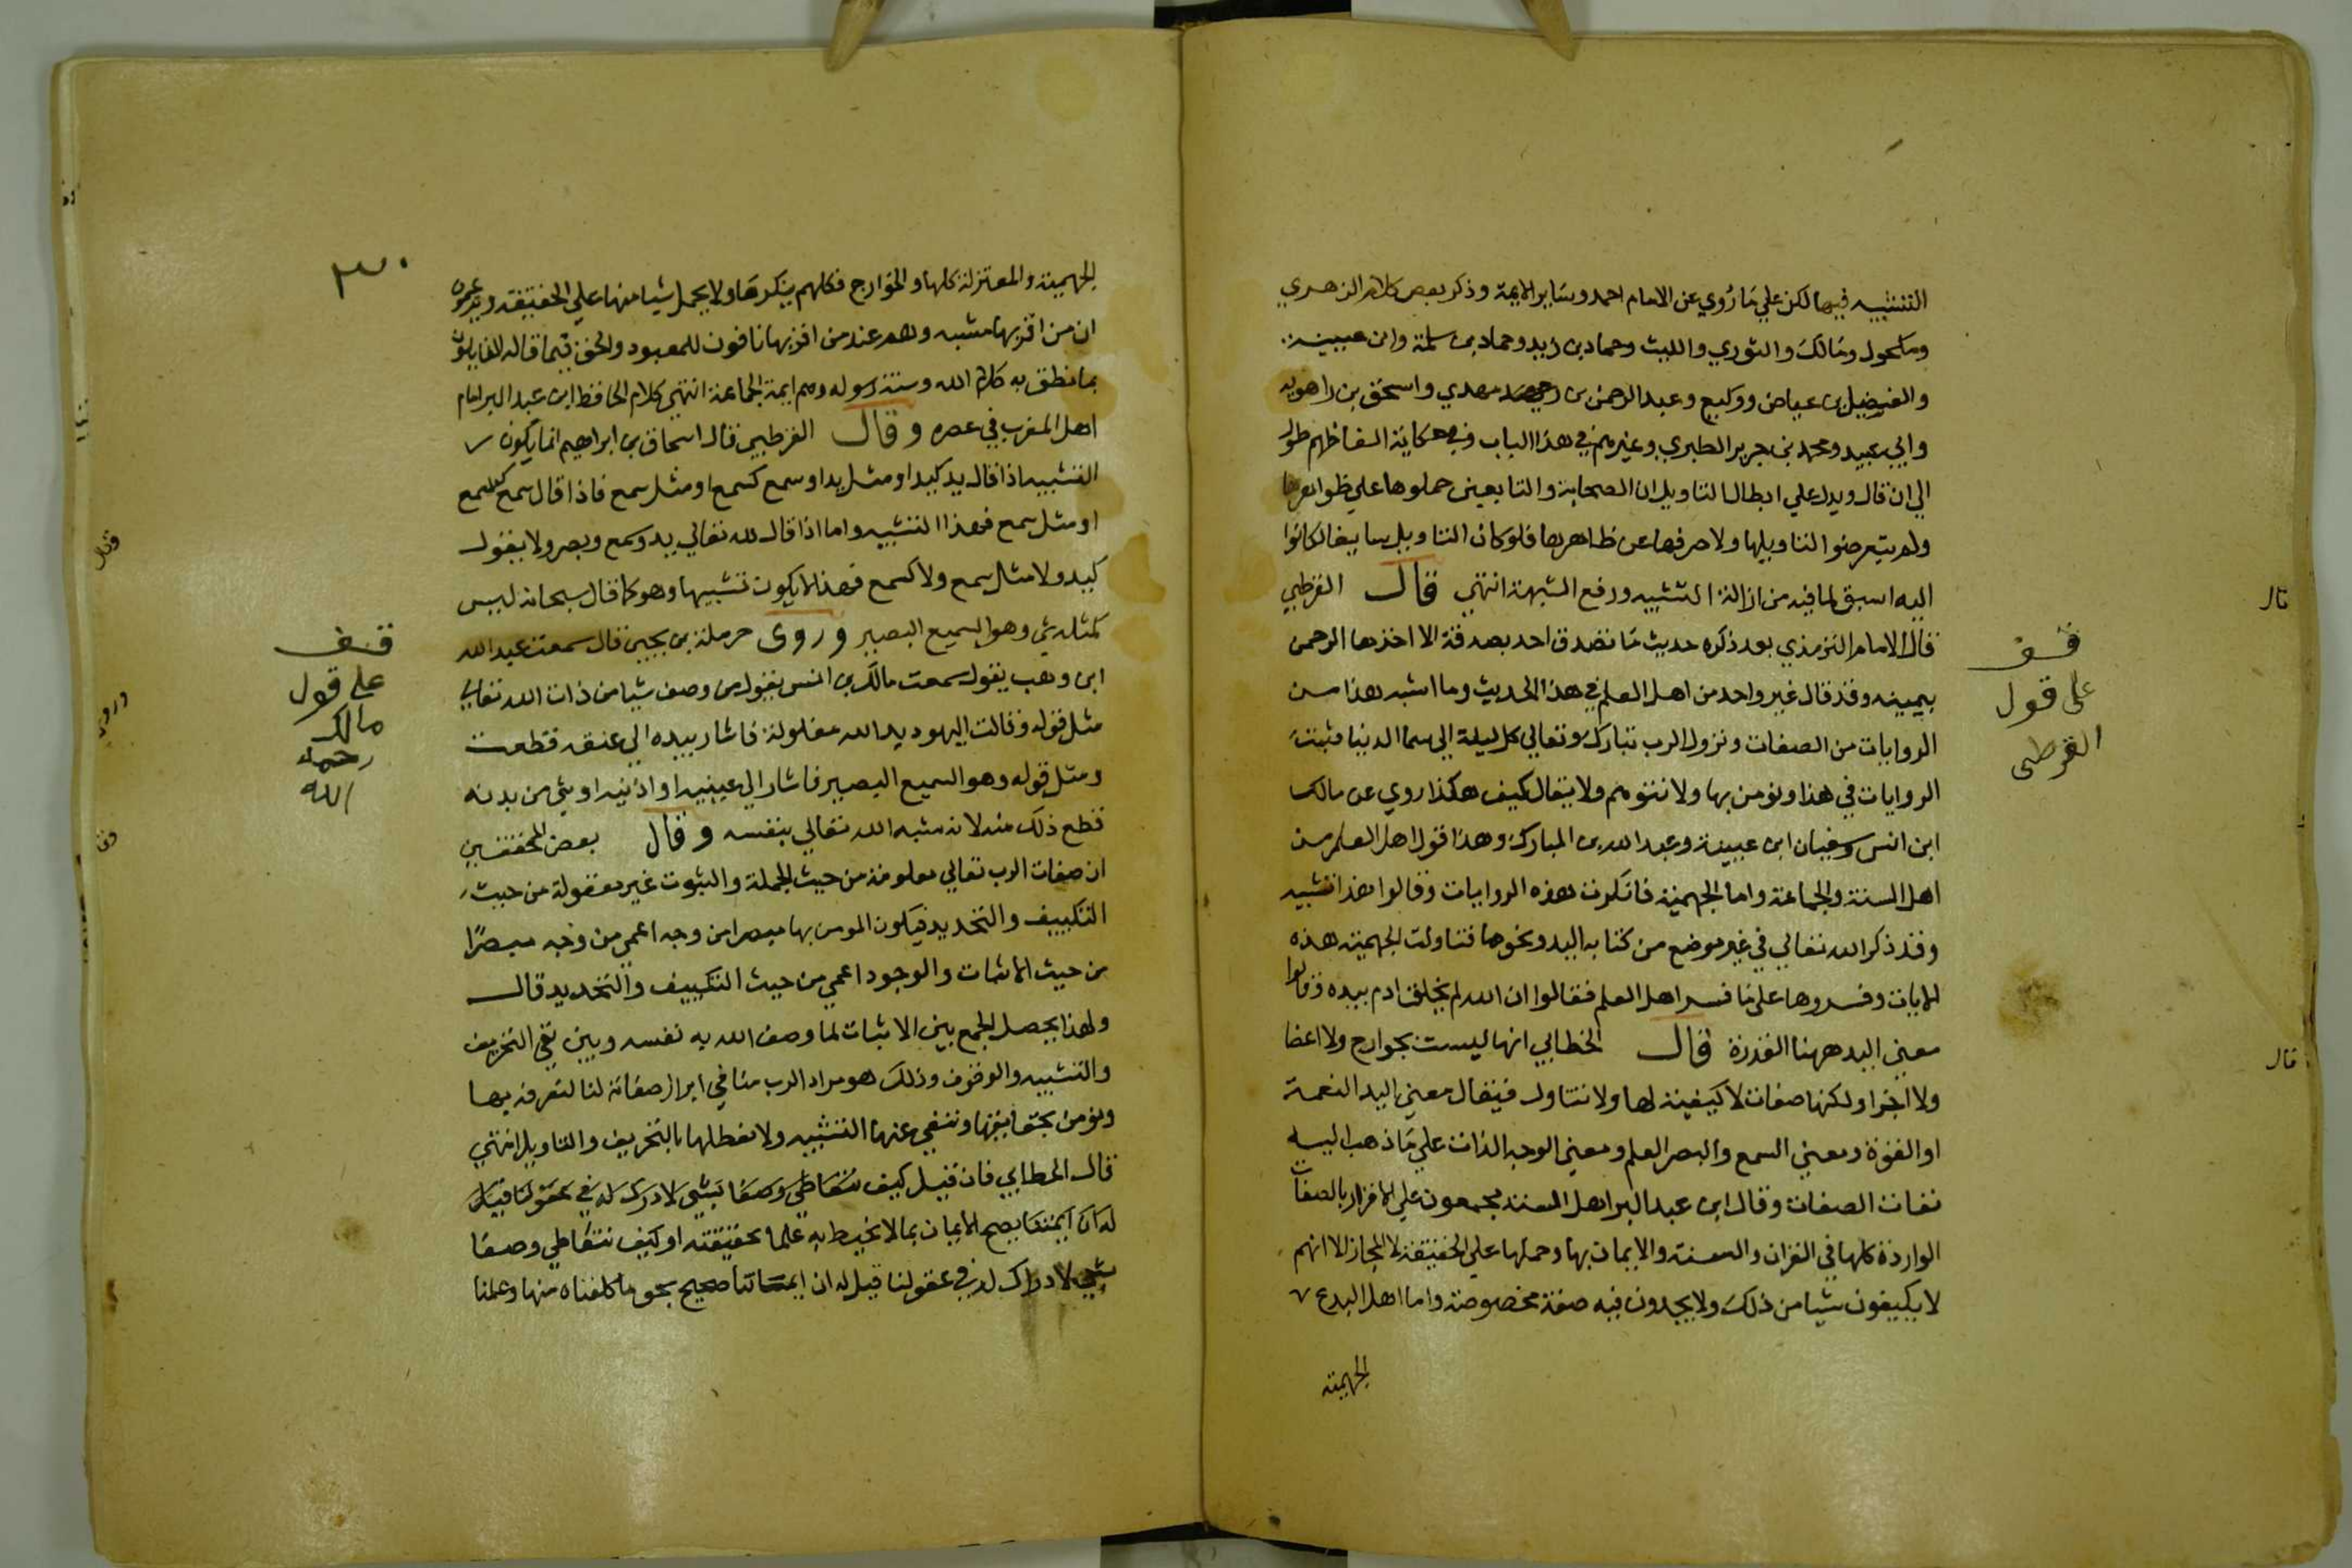 التشبيه فيها لكن علي ما روي عن الامام احمد وساير الايمة وذكر بعض كلام الزهري
ومكحول ومالك والثوري والليث وحماد بن زيد وحماد بن سلمة وابن عيينة
والفضيل بن عياض ووكيع وعبد الرحمن بن مهدي واسحق بن راهويه
وابي عبيد ومحمد بن جرير الطبري وغيرهم في هذا الباب وفي حكاية الفاظهم طول
الي ان قال ويدل علي ابطال التاويل ان الصحابة والتابعين حملوها علي ظواهرها
ولم يتعرضوا لتاويلها ولا صرفها عن ظاهرها فلو كان التاويل سايغا لكانوا
اليه اسبق لما فيه من ازالة التشبيه ورفع الشبهة انتهي قال القرطبي
قال الامام الترمذي بعد ذكره حديث ما تصدق احد بصدقة الا اخذها الرحمن
بيمينه وقد قال غير واحد من اهل العلم في هذا الحديث وما اشبه هذا من
الروايات من الصفات ونزول الرب تبارك وتعالي كل ليلة الي سما الدنيا فثبتت
الروايات في هذا ونومن بها ولا نتوهم ولا يقال كيف هكذا روي عن مالك
ابن انس وسفيان ابن عيينة وعبد الله بن المبارك وهذا قول اهل العلم من
اهل السنة والجماعة واما الجهمية فانكرت هذه الروايات وقالوا هذا تشبيه
وقد ذكر الله تعالي في غير موضع من كتابه اليد ونحوها فتاولت الجهمية هذه
الايات وفسروها علي ما فسر اهل العلم فقالوا ان الله لم يخلق ادم بيده وقالوا
معني اليد ههنا القدرة قال الخطابي انها ليست بجوارح ولا اعضا
ولا اجزا ولكنها صفات لا كيفية لها ولا نتاول فيقال معني اليد النعمة
او القوة ومعني السمع والبصر العلم ومعني الوجه الذات علي ما ذهب اليه
نفات الصفات وقال ابن عبد البر اهل السنة مجمعون علي الاقرار بالصفات
الواردة كلها في القران والسنة والايمان بها وحملها علي الحقيقة لا المجاز الا انهم
لا يكيفون شيا من ذلك ولا يجدون فيه صفة مخصوصة واما اهل البدع
الجهمية
قف
على قول
القرطبى
قال
قال
٣٠
الجهمية والمعتزلة كلها والخوارج فكلهم ينكرها ولا يحمل شيا منها علي الحقيقة ويزعمون
ان من اقر بها مشبه وهم عند من اقر بها نافون للمعبود والحق فيما قاله القايلون
بما نطق به كلام الله وسنة رسوله وهم ايمة الجماعة انتهي كلام الحافظ ابن عبد البر امام
اهل المغرب في عصره وقال القرطبي قال اسحاق بن ابراهيم انما يكون
التشبيه اذا قال يد كيد او مثل يد او سمع كسمع او مثل سمع فاذا قال سمع كسمع
او مثل سمع فهذا التشبيه واما اذا قال لله تعالي يد وسمع وبصر ولا يقول
كيد ولا مثل سمع ولا كسمع فهذا لا يكون تشبيها وهو كما قال سبحانه ليس
كمثله شي وهو السميع البصير وروى حرملة بن يحيي قال سمعت عبد الله
ابن وهب يقول سمعت مالك بن انس يقول من وصف شيا من ذات الله تعالي
مثل قوله وقالت اليهود يد الله مغلولة فاشار بيده الي عنقه قطعت
ومثل قوله وهو السميع البصير فاشار الي عينيه او اذنيه او شي من بدنه
قطع ذلك منه لانه شبه الله تعالي بنفسه وقال بعض المحققين
ان صفات الرب تعالي معلومة من حيث الجملة والثبوت غير معقولة من حيث
التكييف والتحديد فيكون المومن بها مبصرا من وجه اعمي من وجه مبصرًا
من حيث الاثبات والوجود اعمي من حيث التكييف والتحديد قال
ولهذا يحصل الجمع بين الاثبات لما وصف الله به نفسه وبين نفي التحريف
والتشبيه والوقوف وذلك هو مراد الرب منا في ابراز صفاته لنا لنعرفه بها
ونومن بحقايقها وننفي عنها التشبيه ولا نعطلها بالتحريف والتاويل انتهي
قال الخطابي فان قيل كيف نتعاطي وصفا بشي لا درك له في عقولنا قيل
له ان ايمننا يصح الايمان بما لا نحيط به علما بحقيقته او كيف نتعاطي وصفا
بشي لا دراك له في عقولنا قيل له ان ايماننا صحيح بحق ما كلفناه منها وعلمنا
قف
على قول
مالك
رحمه
الله